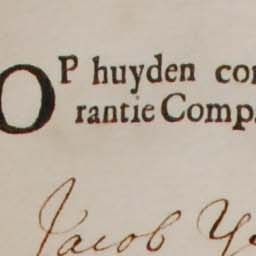 OP huyden con
rantie Comp.
Jacob Y